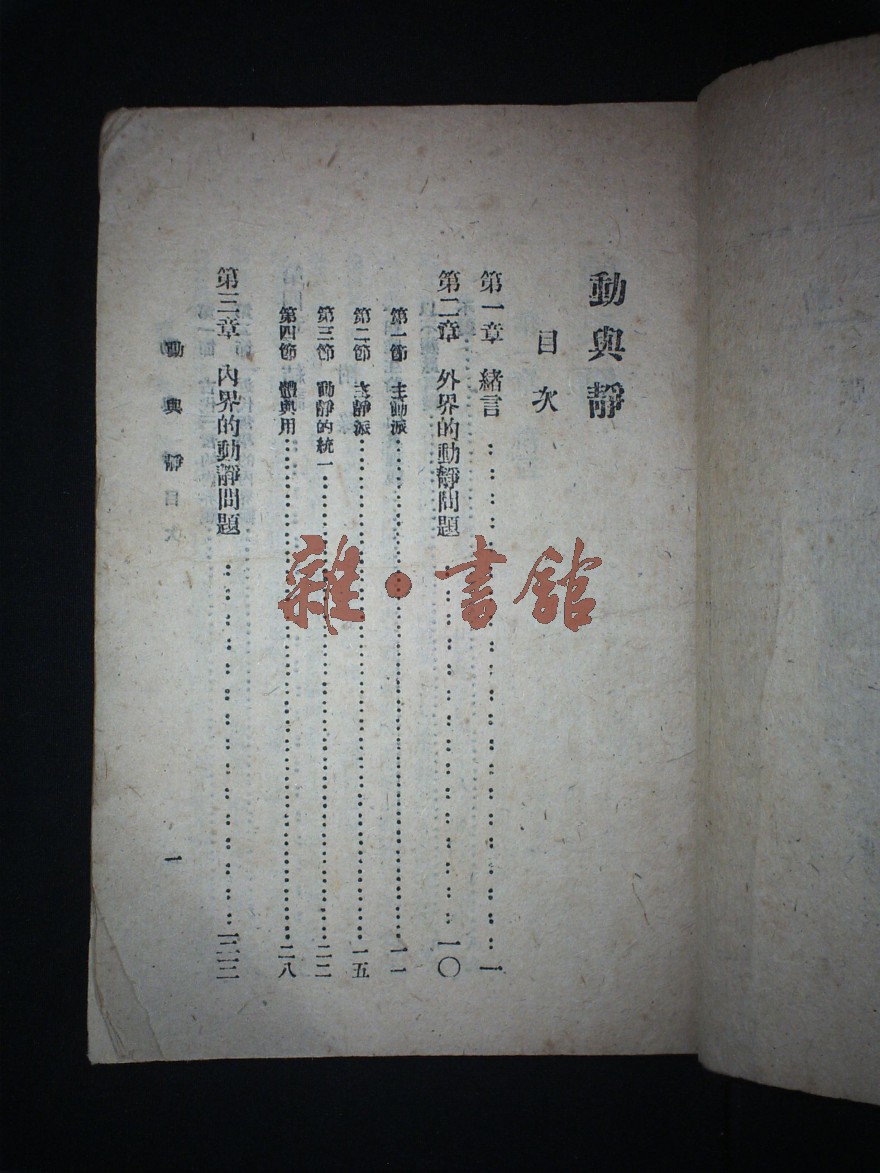 動與靜
目次
第一章 緒言……………………一
第二章 外界的動靜問題……………………一〇
第一節 主動派……………………一一
第二節 主靜派……………………一五
第三節 動靜的統一……………………二二
第四節 體與用……………………二八
第三章 內界的動靜問題……………………三三
動與靜 目次
一
雜·書館